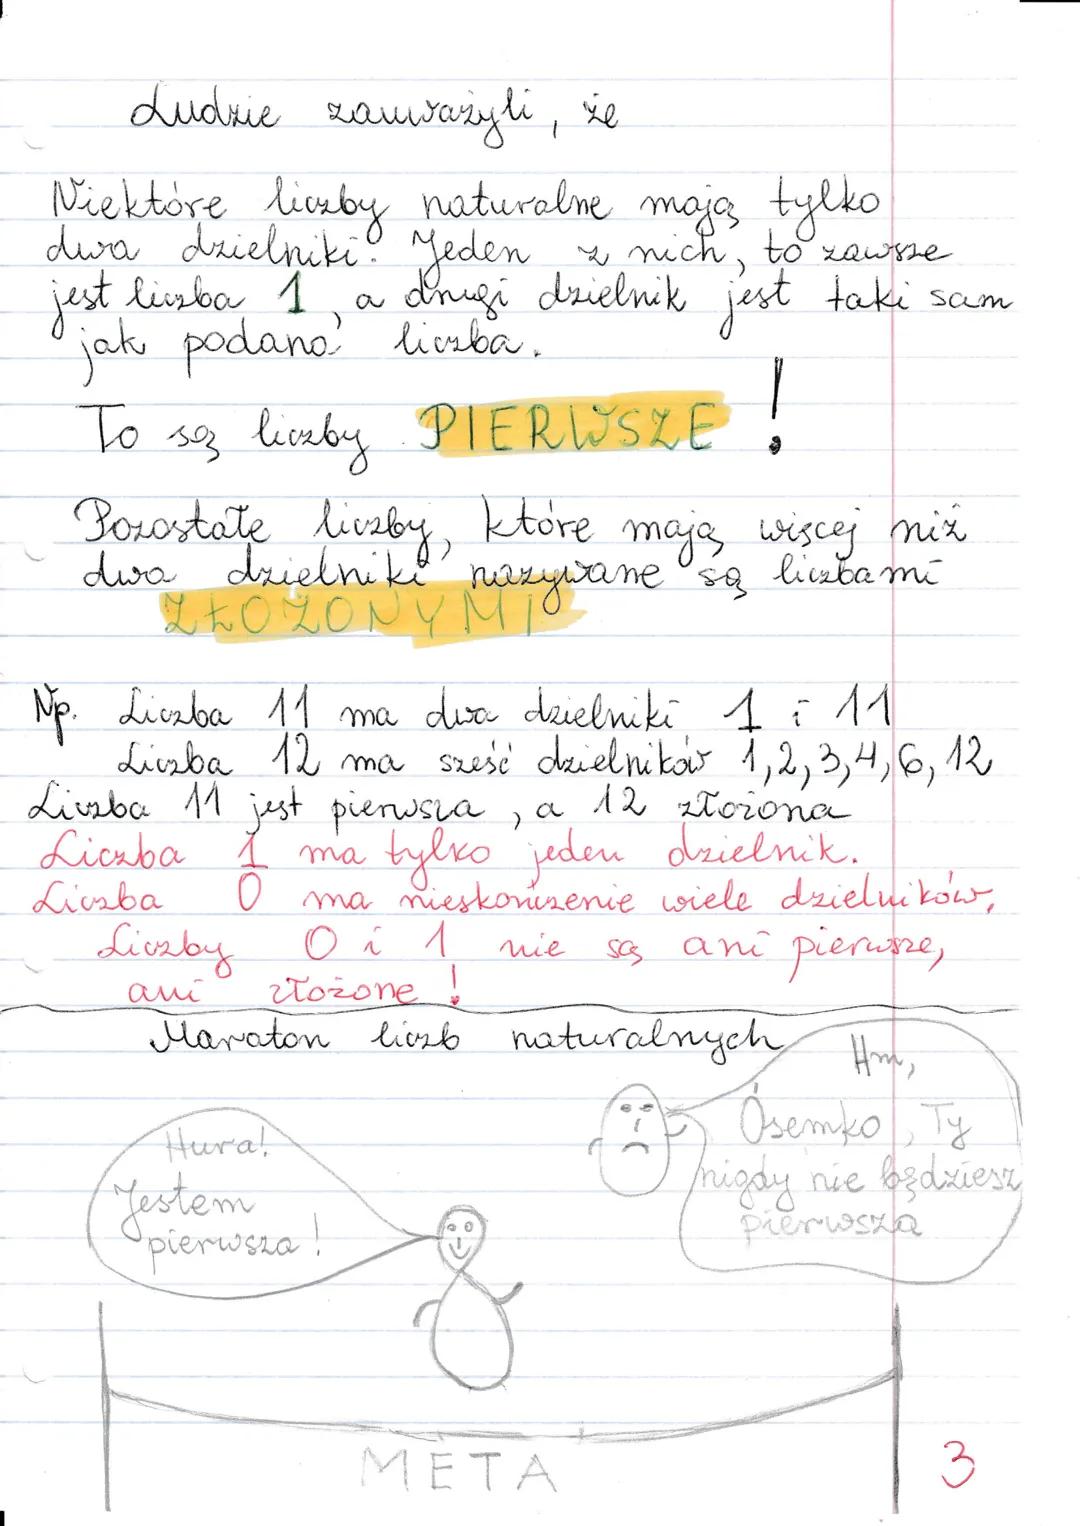 Ludzie zauważyli, że
Niektóre liczby naturalne mają tylko
dwa dzielniki. Jeden z nich, to zawsze
jest liczba 1, a drugi dzielnik jest taki sam
jak podana liczba.
To są liczby PIERWSZE!
Pozostałe liczby, które mają więcej niż
dwa dzielniki nazywane są liczbami
ZŁOŻONYMI
Np. Liczba 11 ma dwa dzielniki 1 i 11
Liczba 12 ma sześć dzielników 1,2,3,4,6,12
Liczba 11 jest pierwsza, a 12 złożona
Liczba 1 ma tylko jeden dzielnik.
Liczba 0 ma nieskończenie wiele dzielników.
Liczby 0 i 1 nie są ani pierwsze,
ani złożone!
Maraton liczb naturalnych
Hm,
Ósemko, Ty
nigdy nie będziesz
pierwsza
Hura!
Jestem
pierwsza!
META
3